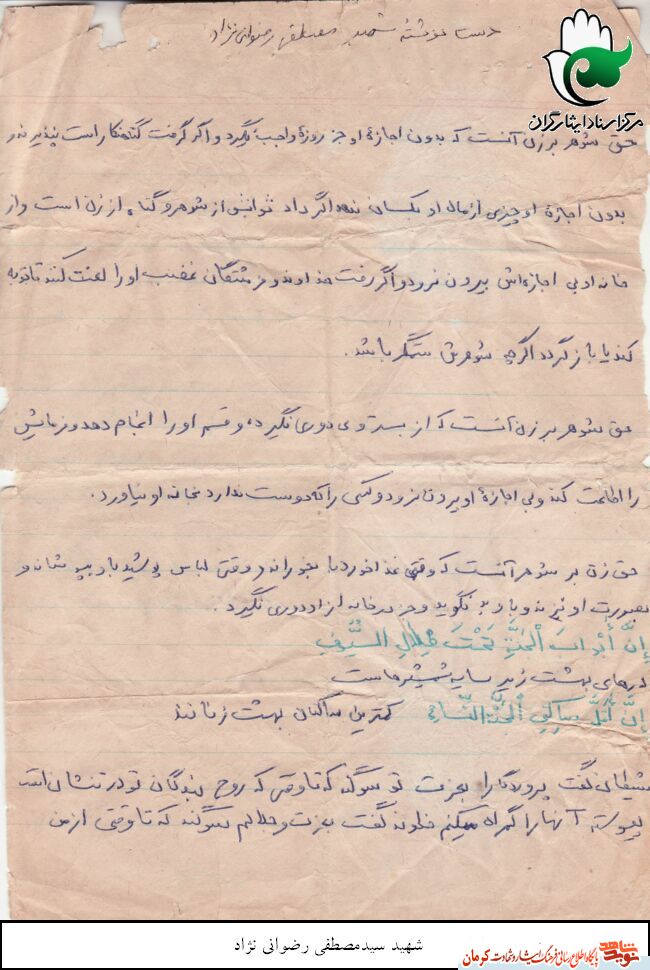 دست نوشتهٔ شهید مصطفی رضوانی نژاد
مرکز اسناد ایثارگران
حق شوهر بر زن آنست که بدون اجازهٔ او جز روزهٔ واجب نگیرد و اگر گرفت گنهکار است پذیر نه و
بدون اجازهٔ او چیزی از مال او بکسان ندهد اگر داد ثوابش از شوهر و گناه از زن است و از
خانه او بی اجازه‌اش بیرون نرود و اگر رفت خداوند و فرشتگان غضب او را لعنت کنند تا توبه
کند یا باز گردد اگر چه شوهرش ستمگر باشد.
حق شوهر بر زن آنست که از بستر وی دوری نگیرد، و قسم او را انجام دهد و فرمانش
را اطاعت کند و بی اجازهٔ او بیرون نرود و کسی را که دوست ندارد بخانه او نیاورد.
حق زن بر شوهر آنست که وقتی غذا خورد باو بخوراند وقتی لباس پوشید باو بپوشاند و
بصورت او نزند و باو بد نگوید و جز در خانه از او دوری نگیرد.
إِنَّ أَبْوَابَ الْجَنَّةِ تَحْتَ ظِلَالِ السُّيُوفِ
درهای بهشت زیر سایه شمشیرهاست
إِنَّ أَقَلَّ سَاكِنِي الْجَنَّةِ النِّسَاءُ کمترین ساکنان بهشت زنانند
شیطان گفت پروردگارا بعزت تو سوگند که تا وقتی که روح بندگان تو در تنشان است
پیوسته آنها را گمراه میکنم خداوند گفت بعزت و جلالم سوگند که تا وقتی از من
شهید سیدمصطفی رضوانی نژاد
نوید شاهد
پایگاه اطلاع رسانی فرهنگ ایثار و شهادت کرمان